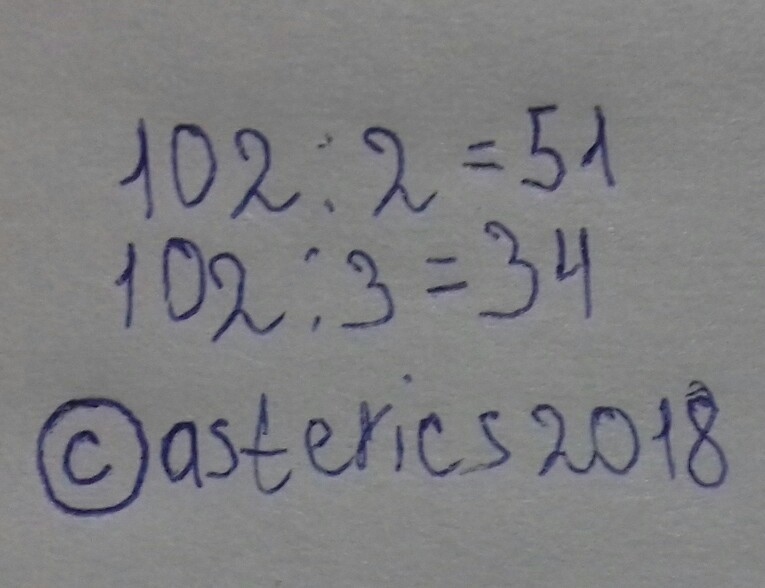 102 : 2 = 51
102 : 3 = 34
©asterics2018